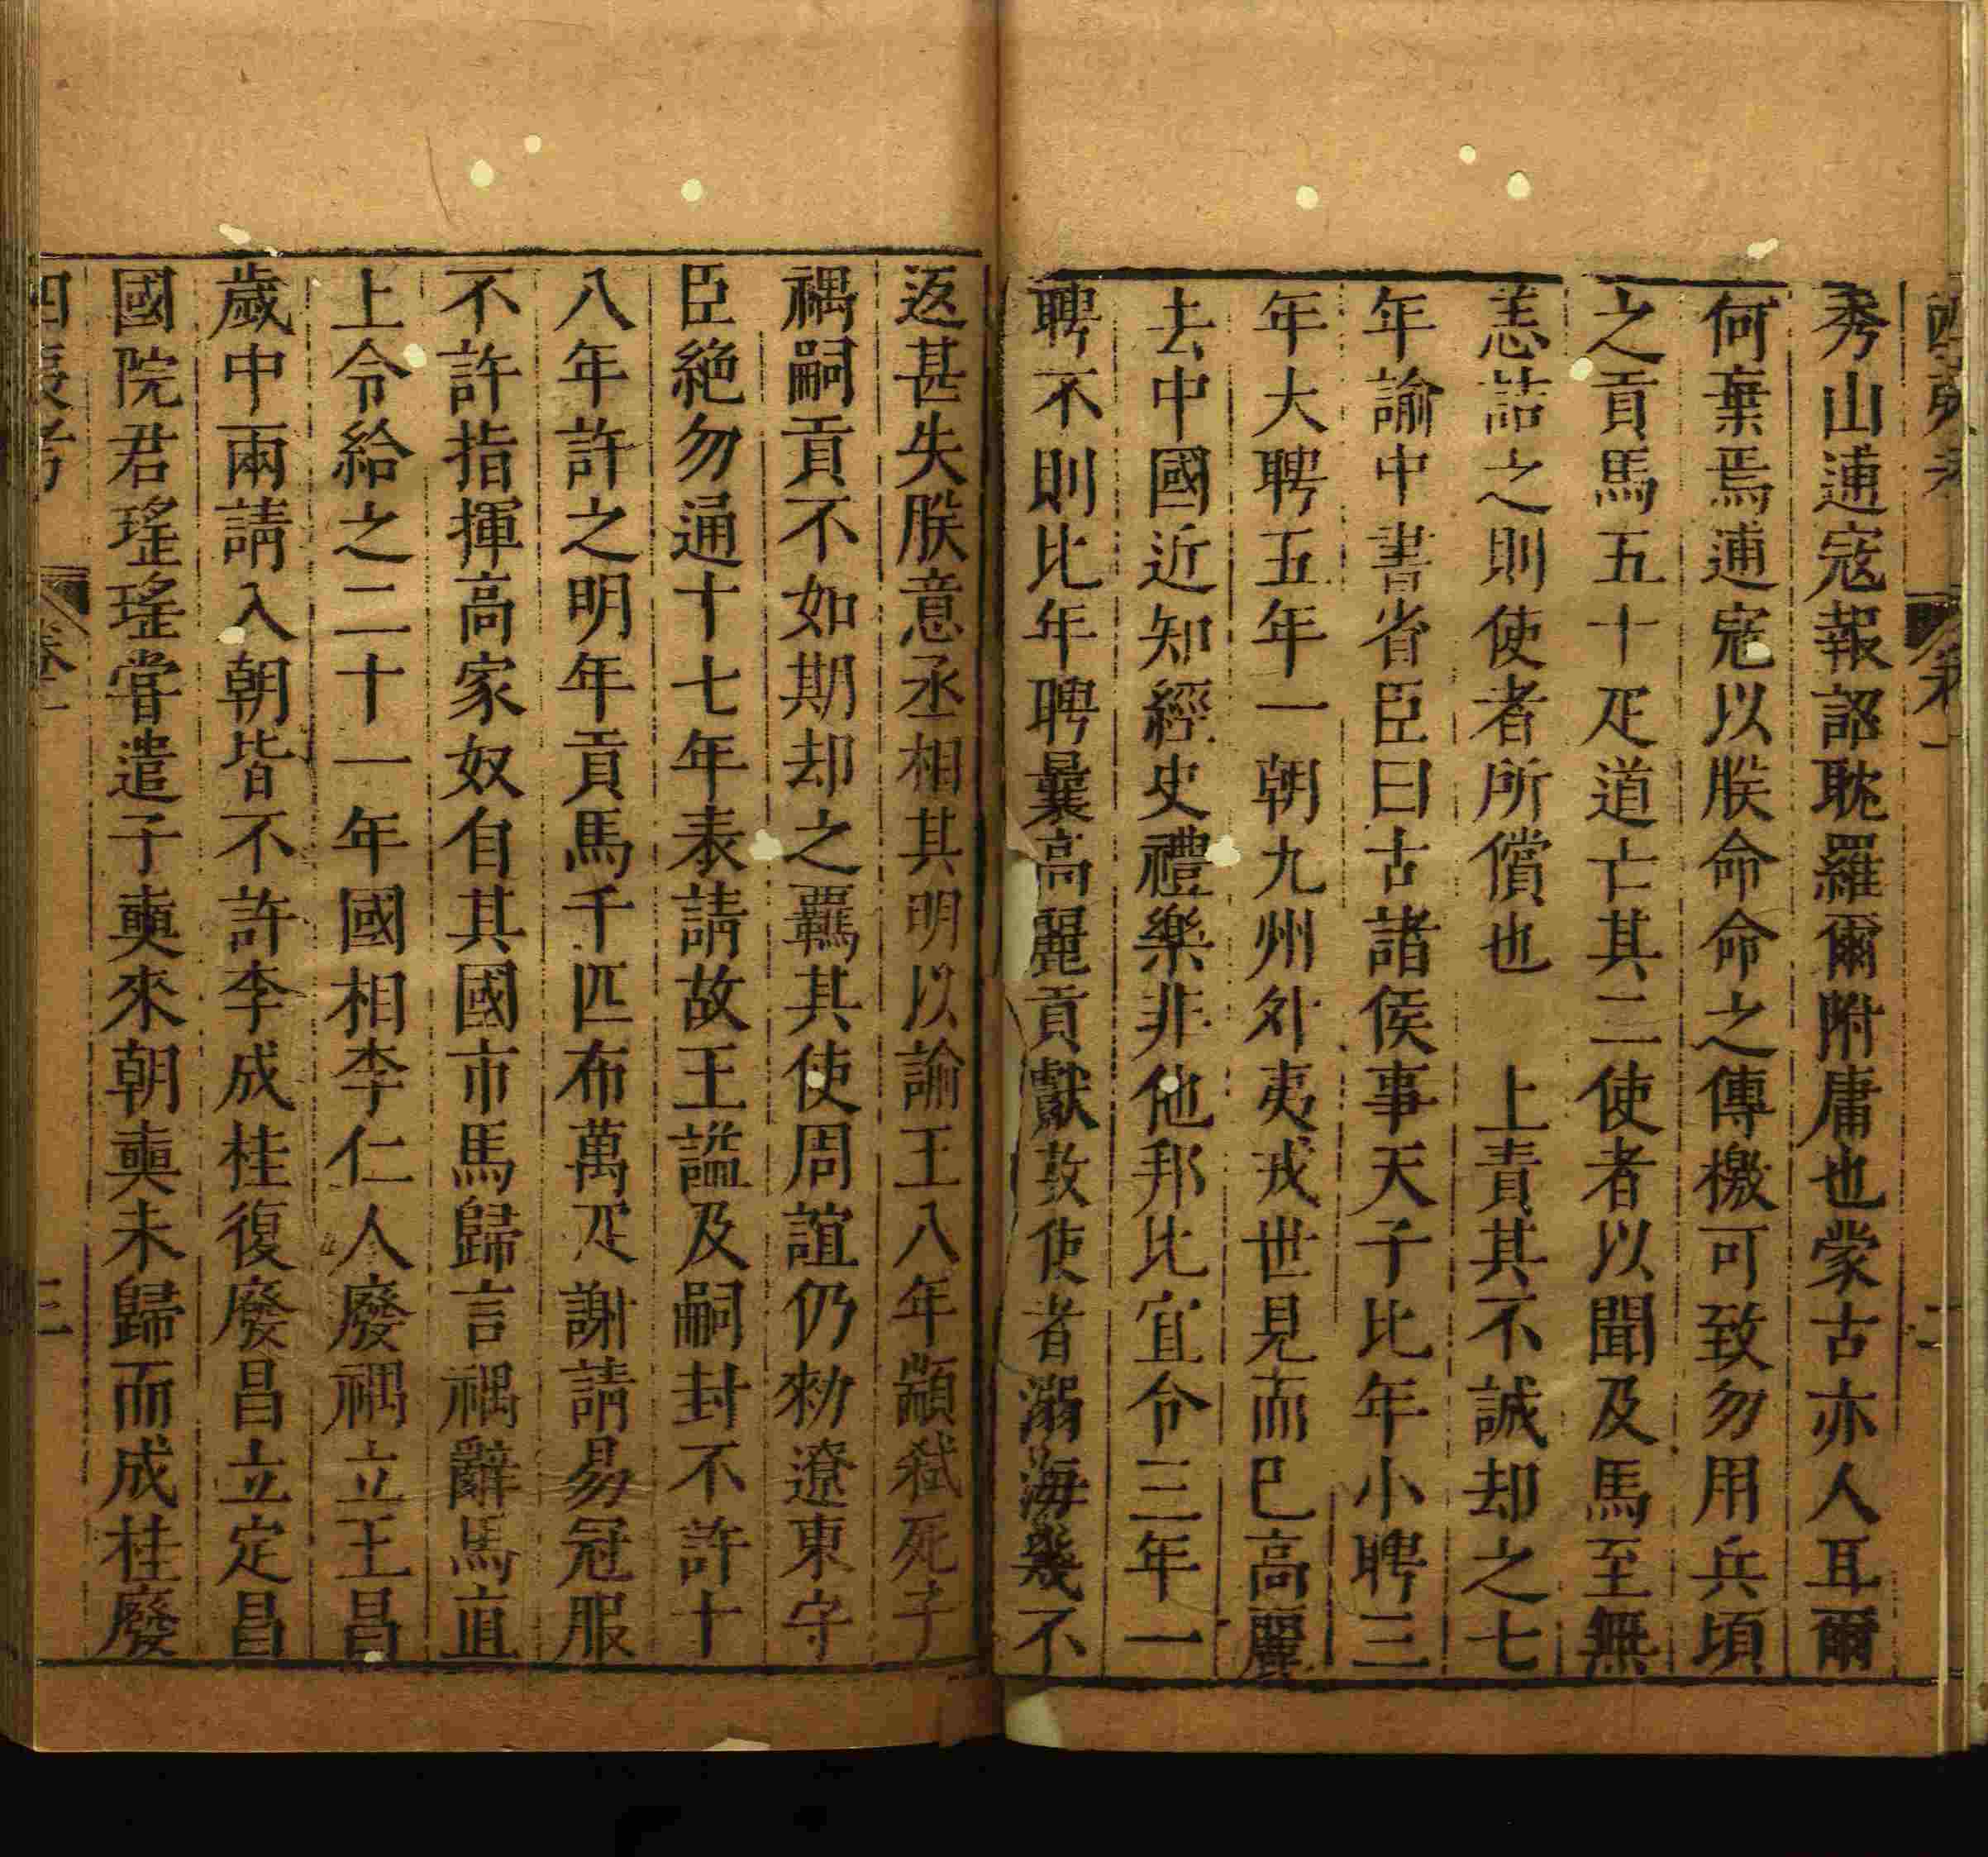 四夷考 卷一 二
秀山逋寇報詔耽羅爾附庸也蒙古亦人耳爾
何棄焉逋寇以朕命命之傳檄可致勿用兵頃
之貢馬五十疋道亡其二使者以聞及馬至無
恙詰之則使者所償也 上責其不誠却之七
年諭中書省臣曰古諸侯事天子比年小聘三
年大聘五年一朝九州外夷戎世見而已高麗
去中國近知經史禮樂非他邦比宜令三年一
聘不則比年聘曩高麗貢獻數使者溺海幾不
返甚失朕意丞相其明以諭王八年顓弒死子
禑嗣貢不如期却之羈其使周誼仍勑遼東守
臣絕勿通十七年表請故王謚及嗣封不許十
八年許之明年貢馬千匹布萬疋謝請易冠服
不許指揮高家奴自其國市馬歸言禑辭馬直
上令給之二十一年國相李仁人廢禑立王昌
歲中兩請入朝皆不許李成桂復廢昌立定昌
國院君瑤瑤嘗遣子奭來朝奭未歸而成桂廢
四夷考 卷一 三